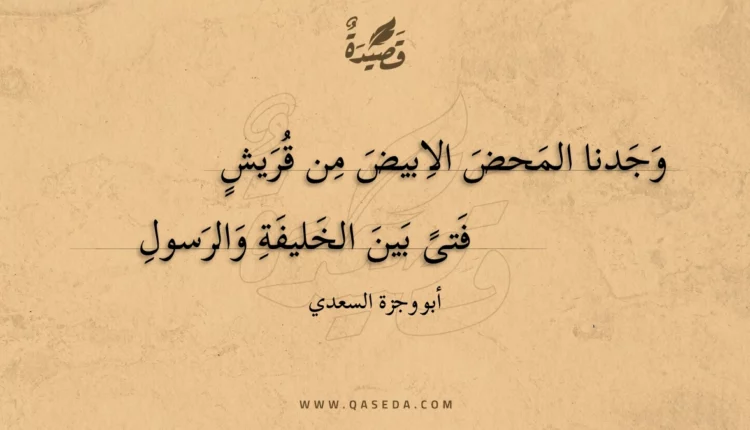 قَصِيدَةٌ
وَجَدنا المَحضَ الاِبيضَ مِن قُرَيشٍ
فَتىً بَينَ الخَليفَةِ وَالرَسولِ
أبو وجزة السعدي
WWW.QASEDA.COM